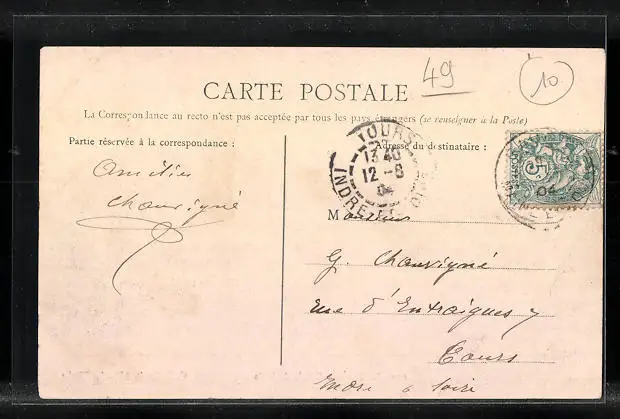 49
10
CARTE POSTALE
La Correspondance au recto n'est pas acceptée par tous les pays étrangers (se renseigner à la Poste)
Partie réservée à la correspondance :
Adresse du destinataire :
Amitiés
Chauvigné
TOURS
13 40
12 - 8
04
INDRE-ET-
04
Monsieur
G. Chauvigné
rue d'Entraigues 7
Tours
Indre & Loire